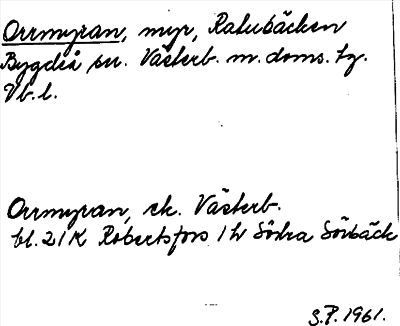 Orrmyran, myr, Ratubäcken
Bygdeå sn. Västerb. m. doms. tg.
Vb. l.
Orrmyran, ek. Västerb.
bl. 21K Robertsfors 1 h Södra Sörbäck
S.P. 1961.